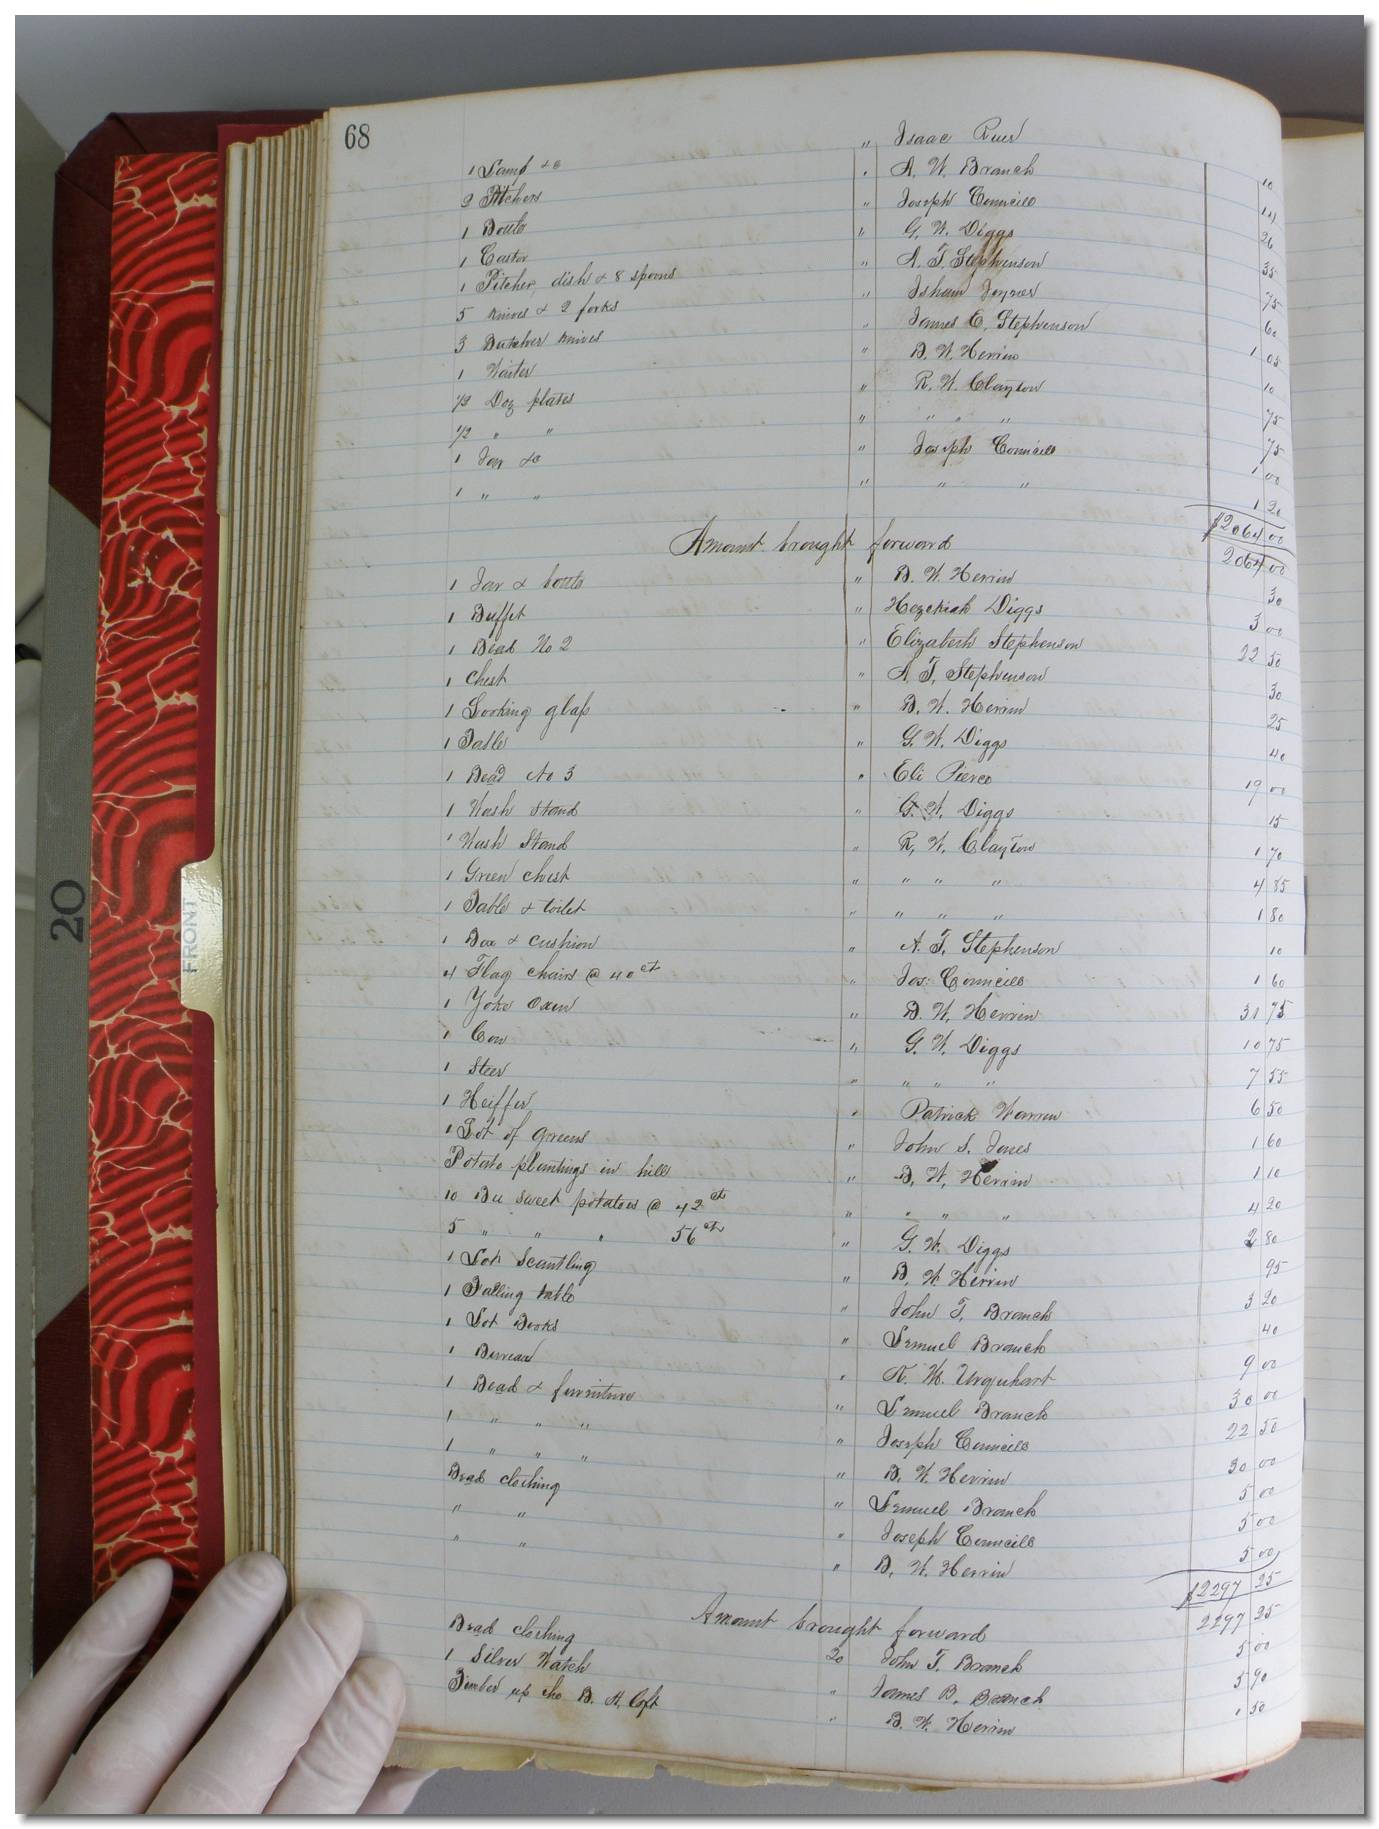 68
1 Lamp &c " Isaac 10
2 Pitchers " A. W. Branch 14
1 Bottle " Joseph Councill 26
1 Castor " G. W. Diggs 35
1 Pitcher, dish & 8 spoons " A. T. Stephenson 75
5 Knives & 2 forks " Isham Joyner 60
3 Butcher Knives " James E. Stephenson 1 05
1 Waiter " B. W. Herrin 10
1/2 Doz plates " R. W. Clayton 75
1/2 " " " " " " 75
1 Jar &c " Joseph Councill 1 00
1 " " " " " 1 20
$2064 00
Amount brought forward 2064 00
1 Jar & bottle " B. W. Herrin 30
1 Buffet " Hezekiah Diggs 3 00
1 Bead No 2 " Elizabeth Stephenson 22 50
1 Chest " A. T. Stephenson 30
1 Looking glass " B. W. Herrin 25
1 Table " G. W. Diggs 40
1 Bead No 3 " Eli Pierce 19 00
1 Wash Stand " G. W. Diggs 15
1 Wash Stand " R. W. Clayton 1 70
1 Green chest " " " " 4 85
1 Table & toilet " " " " 1 80
1 Box & cushion " A. T. Stephenson 10
4 Flag chairs @ 40 cts " Jos: Councill 1 60
1 Yoke Oxen " B. W. Herrin 31 75
1 Cow " G. W. Diggs 10 75
1 Steer " " " " 7 55
1 Heiffer " Patrick Warren 6 50
1 Lot of Greens " John S. Jones 1 60
Potato plantings in hill " B. W. Herrin 1 10
10 Bu sweet potatoes @ 42 cts " " " " 4 20
5 " " " 56 cts " G. W. Diggs 2 80
1 Lot Scantling " B. W. Herrin 95
1 Falling table " John T. Branch 3 20
1 Lot Books " Lemuel Branch 40
1 Bureau " Urquhart 9 00
1 Bead & furniture " Lemuel Branch 30 00
1 " " " " Joseph Councill 22 50
1 " " " " B. W. Herrin 30 00
Bead clothing " Lemuel Branch 5 00
" " " Joseph Councill 5 00
" " " B. W. Herrin 5 00
$2297 25
Amount brought forward 2297 25
Bead clothing 20 John T. Branch 5 00
1 Silver Watch " James B. Branch 5 90
Timber up the B. W. Herrin 1 50
FRONT
20